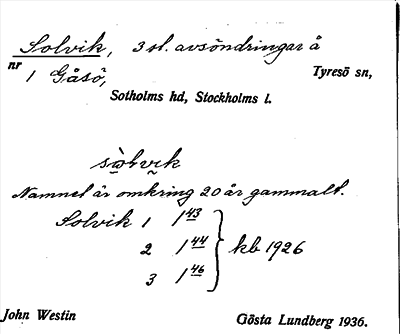 Solvik, 3 st. avsöndringar å
nr 1 Gåsö, Tyresö sn,
Sotholms hd, Stockholms l.
sòlvik
Namnet är omkring 20 år gammalt.
Solvik 1 1 43
2 1 44 } kb 1926
3 1 46
John Westin Gösta Lundberg 1936.